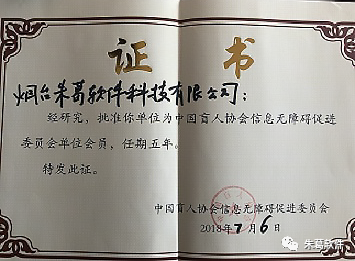 证书
烟台朱葛软件科技有限公司：
经研究，批准你单位为中国盲人协会信息无障碍促进
委员会单位会员，任期五年。
特发此证。
中国盲人协会信息无障碍促进委员会
2018年7月6日
朱葛软件